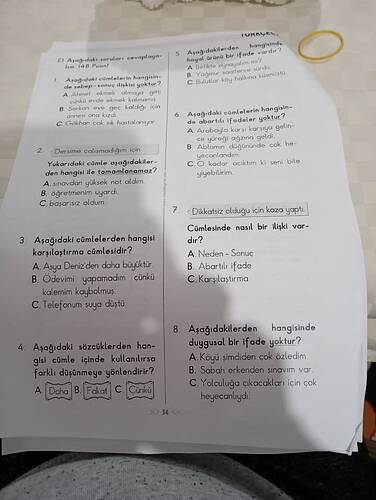 TÜRKÇE
E) Aşağıdaki soruları cevaplaya-
lım. 14.8 Puan!
1. Aşağıdaki cümlelerin hangisin-
de sebep - sonuç ilişkisi yoktur?
A. Ahmet ekmek almaya gitti
çünkü evde ekmek kalmamış.
B. Serkan eve geç kaldığı için
annesi ona kızdı.
C. Gökhan çok sık hastalanıyor.
2. Dersime çalışmadığım için
Yukarıdaki cümle aşağıdakiler-
den hangisi ile tamamlanamaz?
A. sınavdan yüksek not aldım.
B. öğretmenim uyardı.
C. başarısız oldum.
3 Aşağıdaki cümlelerden hangisi
karşılaştırma cümlesidir?
A. Asya Deniz'den daha büyüktür.
B. Ödevimi yapamadım çünkü
kalemim kaybolmuş.
C. Telefonum suya düştü.
4. Aşağıdaki sözcüklerden han-
gisi cümle içinde kullanılırsa
farklı düşünmeye yönlendirir?
A. Daha B. Fakat C Çünkü
5. Aşağıdakilerden hangisinde
hayal ürünü bir ifade vardır?
A. Birlikte oynayalım mı?
B. Yağmur saatlerce sürdü.
C. Bulutlar köy halkına küsmüştü.
6. Aşağıdaki cümlelerin hangisin-
de abartılı ifadeler yoktur?
A. Arabayla karşı karşıya gelin-
ce yüreği ağzına geldi.
B. Ablamın düğününde çok he-
yecanlandım.
C. O kadar acıktım ki seni bile
yiyebilirim.
7. Dikkatsiz olduğu için kaza yaptı.
Cümlesinde nasıl bir ilişki var-
dır?
A. Neden - Sonuç
B. Abartılı ifade
C. Karşılaştırma
8 Aşağıdakilerden hangisinde
duygusal bir ifade yoktur?
A. Köyü şimdiden çok özledim.
B. Sabah erkenden sınavım var.
C. Yolculuğa çıkacakları için çok
heyecanlıydı.
>> 34 <<